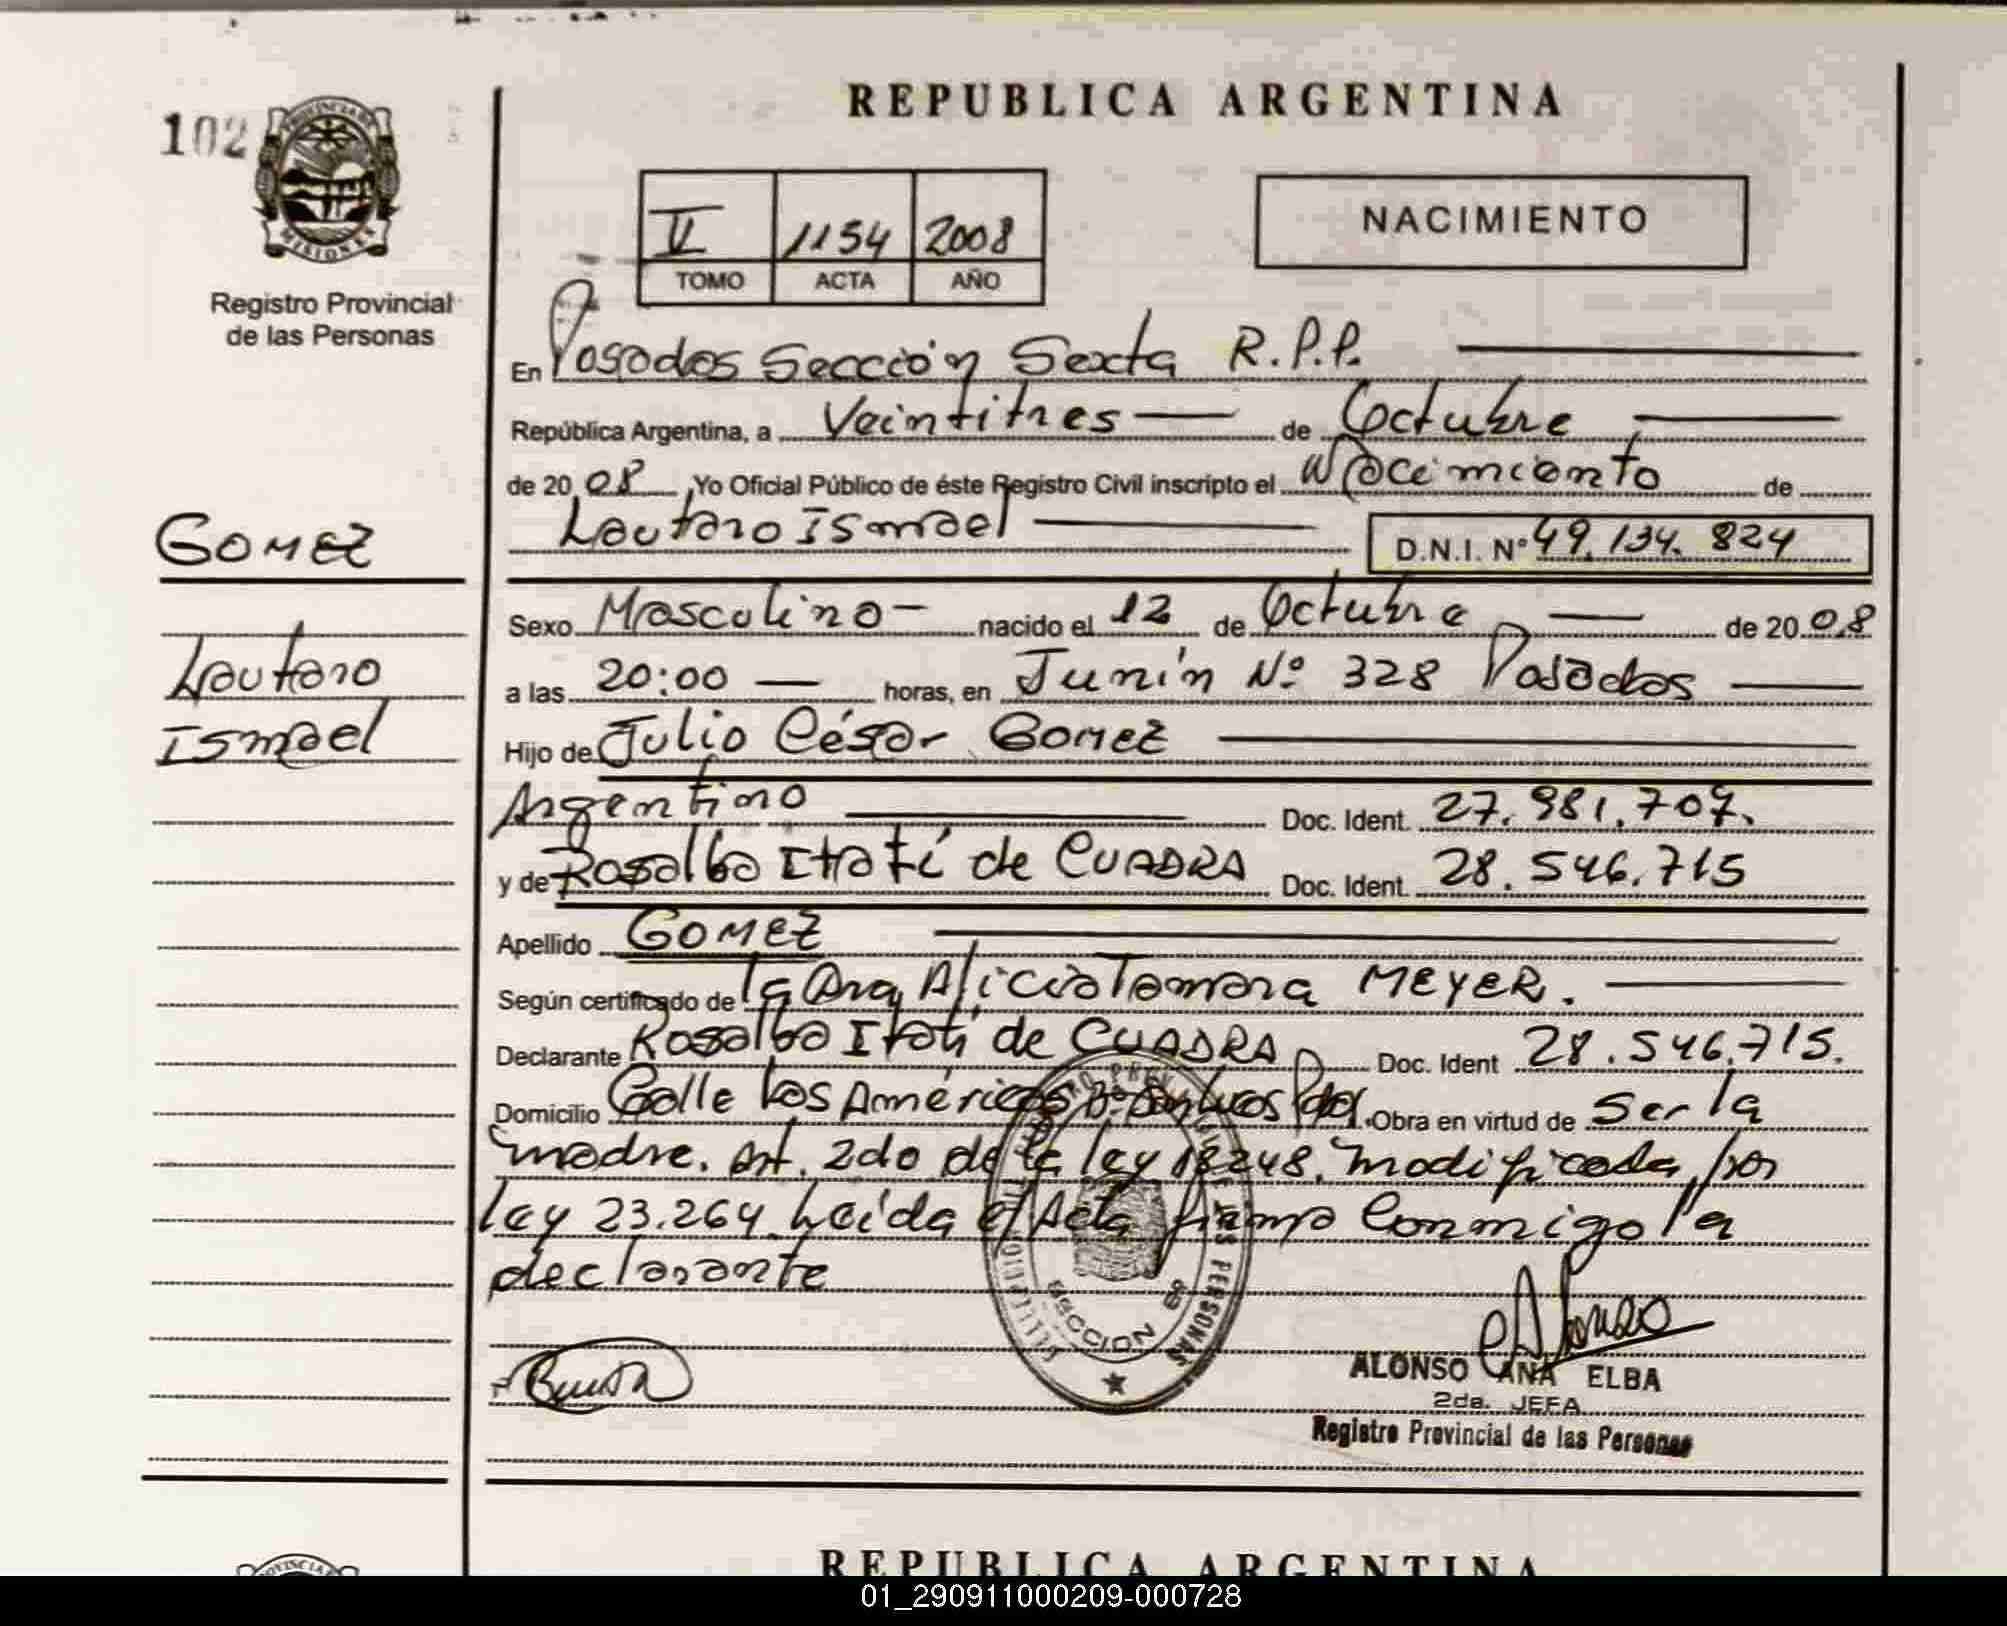 REPUBLICA ARGENTINA
102
PROVINCIA DE
MISIONES
Registro Provincial
de las Personas
II 1154 2008
TOMO ACTA AÑO
NACIMIENTO
En Posadas Sección Sexta R.P.P.
República Argentina, a Veintitres de Octubre
de 2008 Yo Oficial Público de éste Registro Civil inscripto el Nacimiento de
Lautaro Ismael D.N.I. Nº 49.134.824
GOMEZ
Lautaro
Ismael
Sexo Masculino nacido el 12 de Octubre de 2008
a las 20:00 horas, en Junín Nº 328 Posadas
Hijo de Julio César GOMEZ
Argentino Doc. Ident. 27.981.707.
y de Rosalba Itatí de CUADRA Doc. Ident. 28.546.715
Apellido GOMEZ
Según certificado de la Dra Alicia Tamara MEYER.
Declarante Rosalba Itatí de CUADRA Doc. Ident 28.546.715.
Domicilio Calle Las Américas Bº San Lucas Obra en virtud de Ser la
madre. Art. 2do de la ley 18248. modificada por
ley 23.264. Leída el Acta firma Conmigo la
declarante
SECCION 6ª
PERSONAS
ALONSO ANA ELBA
2da. JEFA
Registro Provincial de las Personas
REPUBLICA ARGENTINA
01_290911000209-000728